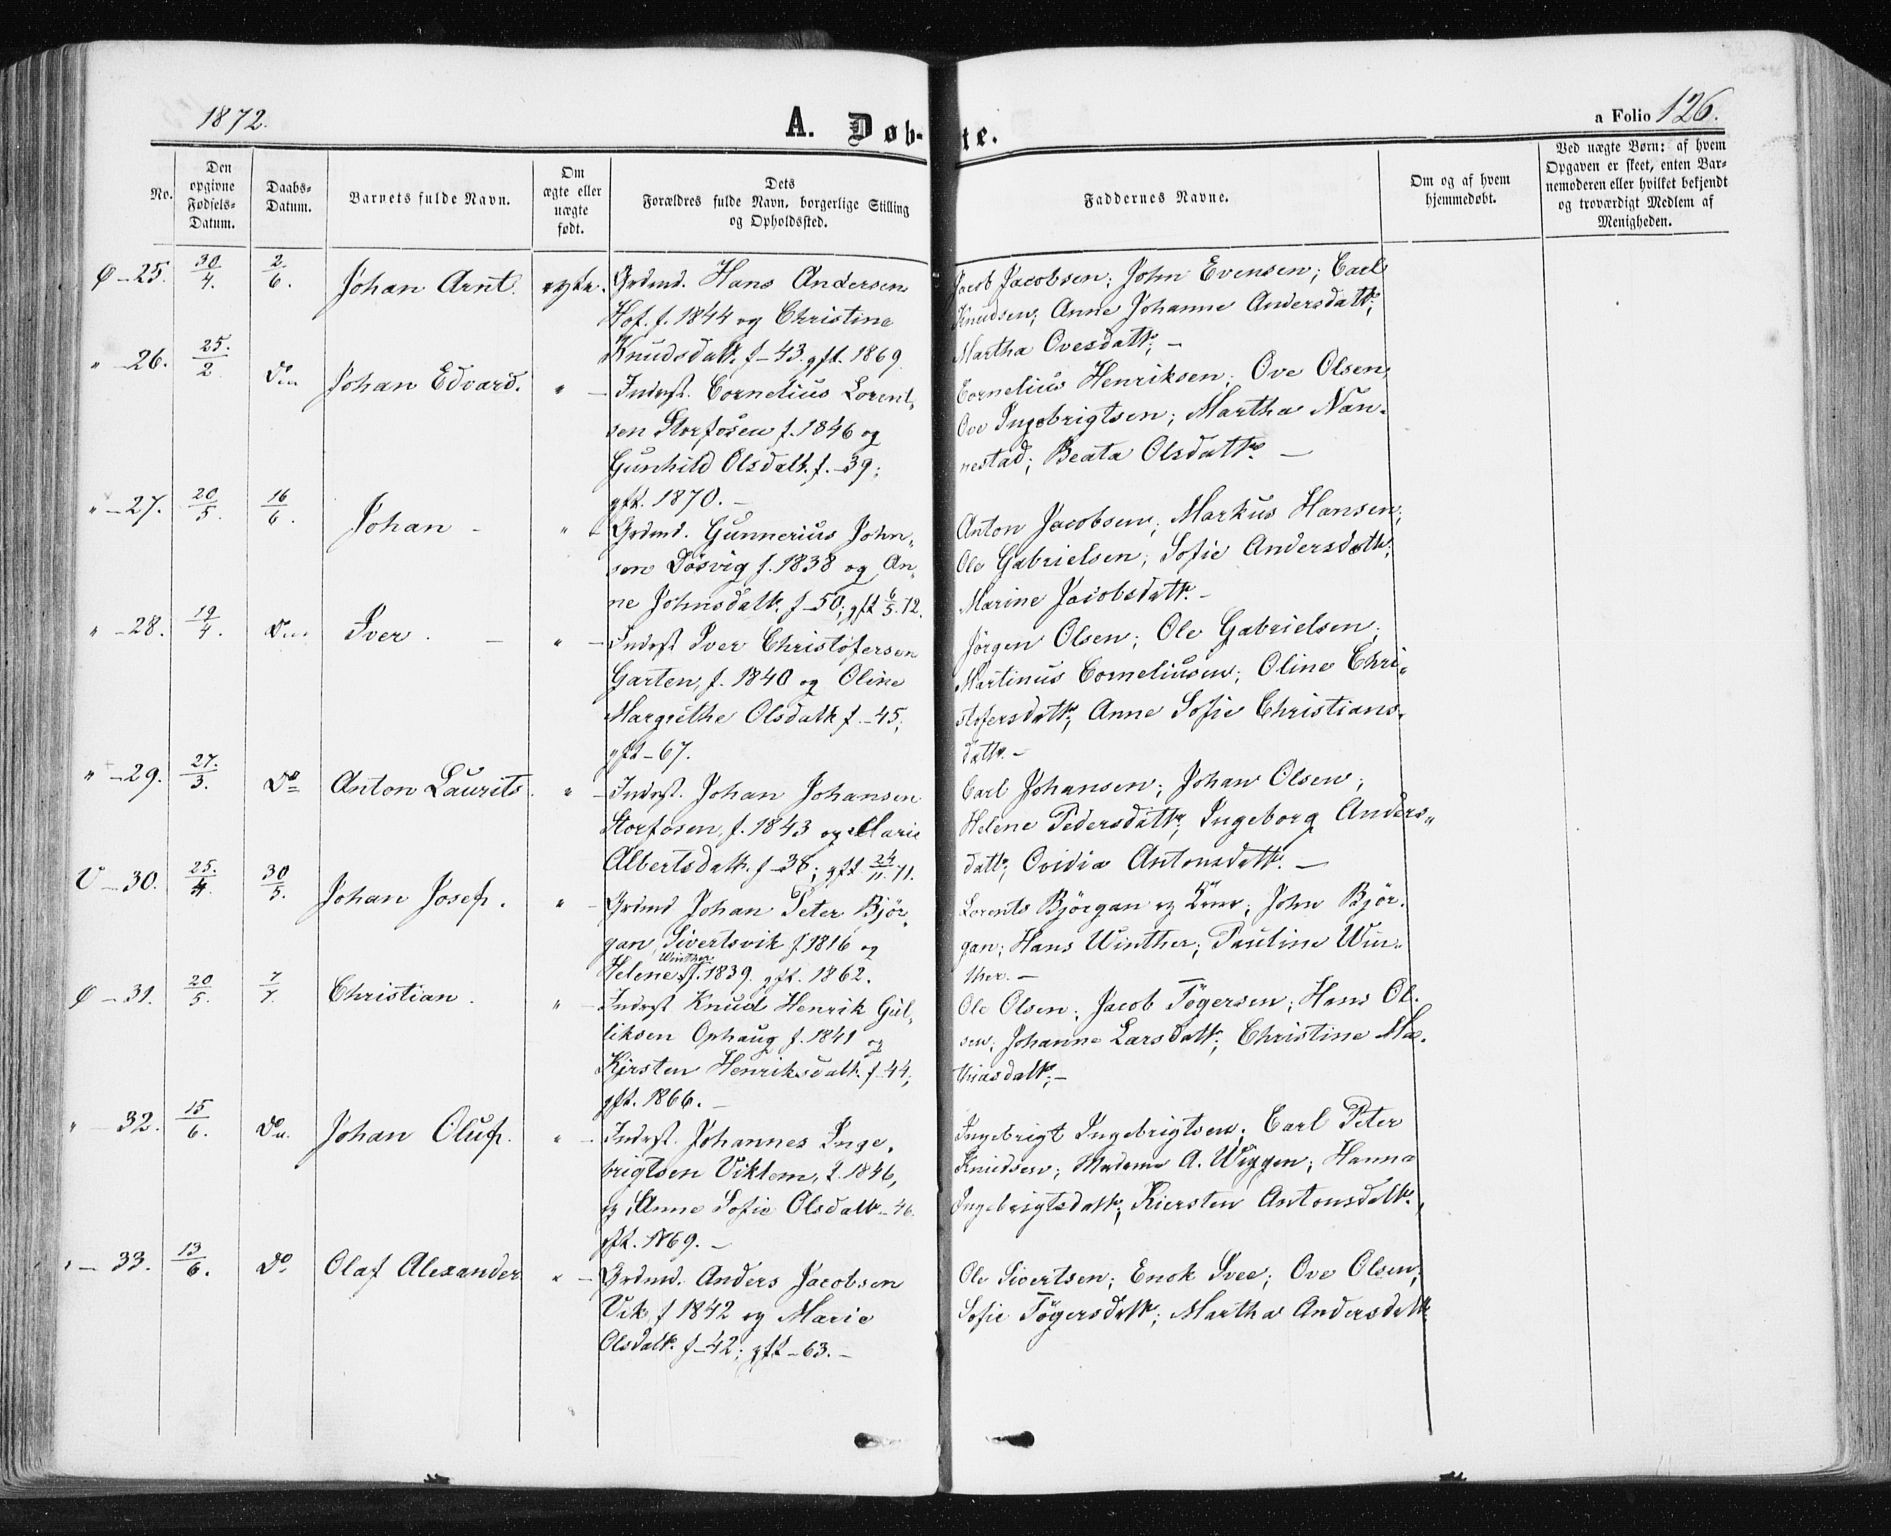 1872.
A. Døb-te.
a Folio 126.
No.
Den opgivne Fødsels-Datum.
Daabs-Datum.
Barnets fulde Navn.
Om ægte eller uægte født.
Dets Forældres fulde Navn, borgerlige Stilling og Opholdssted.
Faddernes Navne.
Om og af hvem hjemmedøbt.
Ved uægte Børn: af hvem Opgaven er skeet, enten Barnemoderen eller hvilket bekjendt og troværdigt Medlem af Menigheden.
Ø - 25. 30/4. 2/6. Johan Arnt. ægte.
Grdmd. Hans Andersen
Hof. f. 1844 og Christine
Knudsdattr. f - 43. gft. 1869.
Jacob Jacobsen; John Evensen; Carl
Knudsen; Anne Johanne Andersdattr;
Martha Ovesdattr; -
" - 26. 25/2. Do Johan Edvard. "
- Inderst. Cornelius Lorent-
sen Storfosen f. 1846 og
Gunhild Olsdattr. f. - 39;
gft. 1870. -
Cornelius Henriksen; Ove Olsen,
Ove Ingebrigtsen; Martha Nan-
nestad; Beata Olsdattr. -
" - 27. 20/5. 16/6. Johan - "
Grdmd. Gunnerius John-
sen Døsvig f. 1838 og An-
ne Johnsdattr. f - 50; gft 6/5. 72.
Anton Jacobsen; Markus Hansen;
Ole Gabrielsen; Sofie Andersdattr;
Marine Jacobsdattr. -
" - 28. 19/4. Do Iver. - "
- Inderst Iver Christofersen
Garten, f. 1840 og Oline
Margrethe Olsdattr f. - 45;
gft - 67.
Jørgen Olsen; Ole Gabrielsen;
Martinus Corneliusen; Oline Chri-
stofersdattr; Anne Sofie Christians-
dattr. -
" - 29. 27/3. Do Anton Laurits. "
- Inderst. Johan Johansen
Storfosen, f. 1843 og Marie
Albertsdattr. f - 38; gft 24/11. 71.
Carl Johansen; Johan Olsen;
Helene Pedersdattr; Ingeborg Anders-
dattr; Ovidia Antonsdattr. -
V - 30. 25/4. 30/5. Johan Josef. "
- Grdmd Johan Peter Bjør-
gan, Sivertsvik f. 1816 og
Helene Winther f. 1839. gft. 1862.
Lorents Bjørgan og Kone; John Bjør-
gan; Hans Winther; Pauline Win-
ther. -
Ø - 31. 20/5. 7/7. Christian. "
- Inderst Knud Henrik Gul-
liksen Ophaug f. 1841 og
Kirsten Henriksdattr. f - 44;
gft. 1866. -
Ole Olsen; Jacob Tøgersen; Hans Ol-
sen; Johanne Larsdattr; Christine Ma-
thiasdattr; -
" - 32. 15/6. Do Johan Oluf. "
- Inderst. Johannes Inge-
brigtsen Viklem, f. 1846,
og Anne Sofie Olsdattr - 46.
gft. 1869. -
Ingebrigt Ingebrigtsen; Carl Peter
Knudsen; Madame A. Wiggen; Hanna
Ingebrigtsdattr; Kiersten Antonsdattr.
" - 33. 13/6. Do Olaf Alexander "
- Grdmd. Anders Jacobsen
Vik f 1842 og Marie
Olsdattr. f - 42; gft - 63. -
Ole Sivertsen; Enok Svee; Ove Olsen;
Sofie Tøgersdattr; Martha Andersdattr.